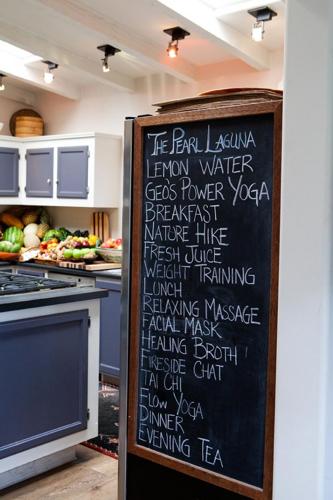 THE PEARL LAGUNA
LEMON WATER
GEO'S POWER YOGA
BREAKFAST
NATURE HIKE
FRESH JUICE
WEIGHT TRAINING
LUNCH
RELAXING MASSAGE
FACIAL MASK
HEALING BROTH
FIRESIDE CHAT
TAI CHI
FLOW YOGA
DINNER
EVENING TEA